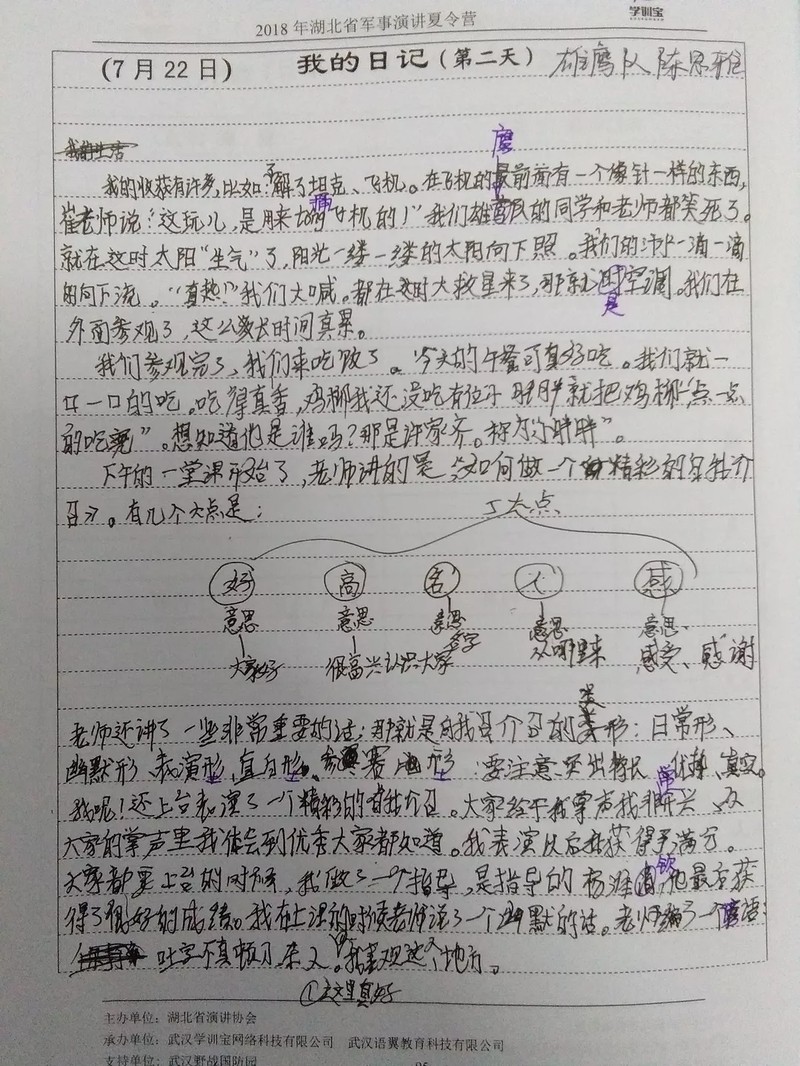 2018年湖北省军事演讲夏令营
学训宝
(7月22日) 我的日记(第二天) 雄鹰队 陈思雅
我的生活
我的收获有许多,比如:了解了坦克、飞机。在飞机的最前面有一个像针一样的东西,
崔老师说:"这玩儿,是用来 飞机的!"我们雄鹰队的同学和老师都笑死了。
就在这时太阳"生气"了,阳光一缕一缕的太阳向下照。我们的汗一滴一滴
的向下流。"真热!"我们大喊。都在这时大救星来了,那就是空调。我们在
外面参观了,这么长时间真累。
我们参观完了,我们来吃饭了。今天的午餐可真好吃。我们就一
口一口的吃。吃得真香,鸡柳我还没吃有位小胖胖就把鸡柳"一点一点
的吃完"。想知道他是谁吗?那是许家齐。称为"小胖胖"。
下午的一堂课开始了,老师讲的是《如何做一个精彩的自我介
召》。有几个大点是:
5大点
好 高 名 人 感
意思 意思 意思 意思 意思
大家好 很高兴认识大家 名字 从哪里来 感受、感谢
老师还讲了一些非常重要的话:那就是自我介召的类形:日常形、
幽默形、表演形,直白形、 赛 形 要注意:突出特 、优静、真实。
我呢!还上台表演了一个精彩的自我介召。大家给于我掌声我非常开兴、从
大家的掌声里我体会到优秀大家都知道。我表演以后我获得了满分。
大家都要上台的时候,我做了一个指导,是指导的杨 ,他最后获
得了很好的成绩。我在上课的时候老师说了一个幽默的话。老师编了一个
吐字不真 刀,杀人。我喜欢这个地方。
①这里真好
主办单位:湖北省演讲协会
承办单位:武汉学训宝网络科技有限公司 武汉语翼教育科技有限公司
支持单位:武汉野战国防园